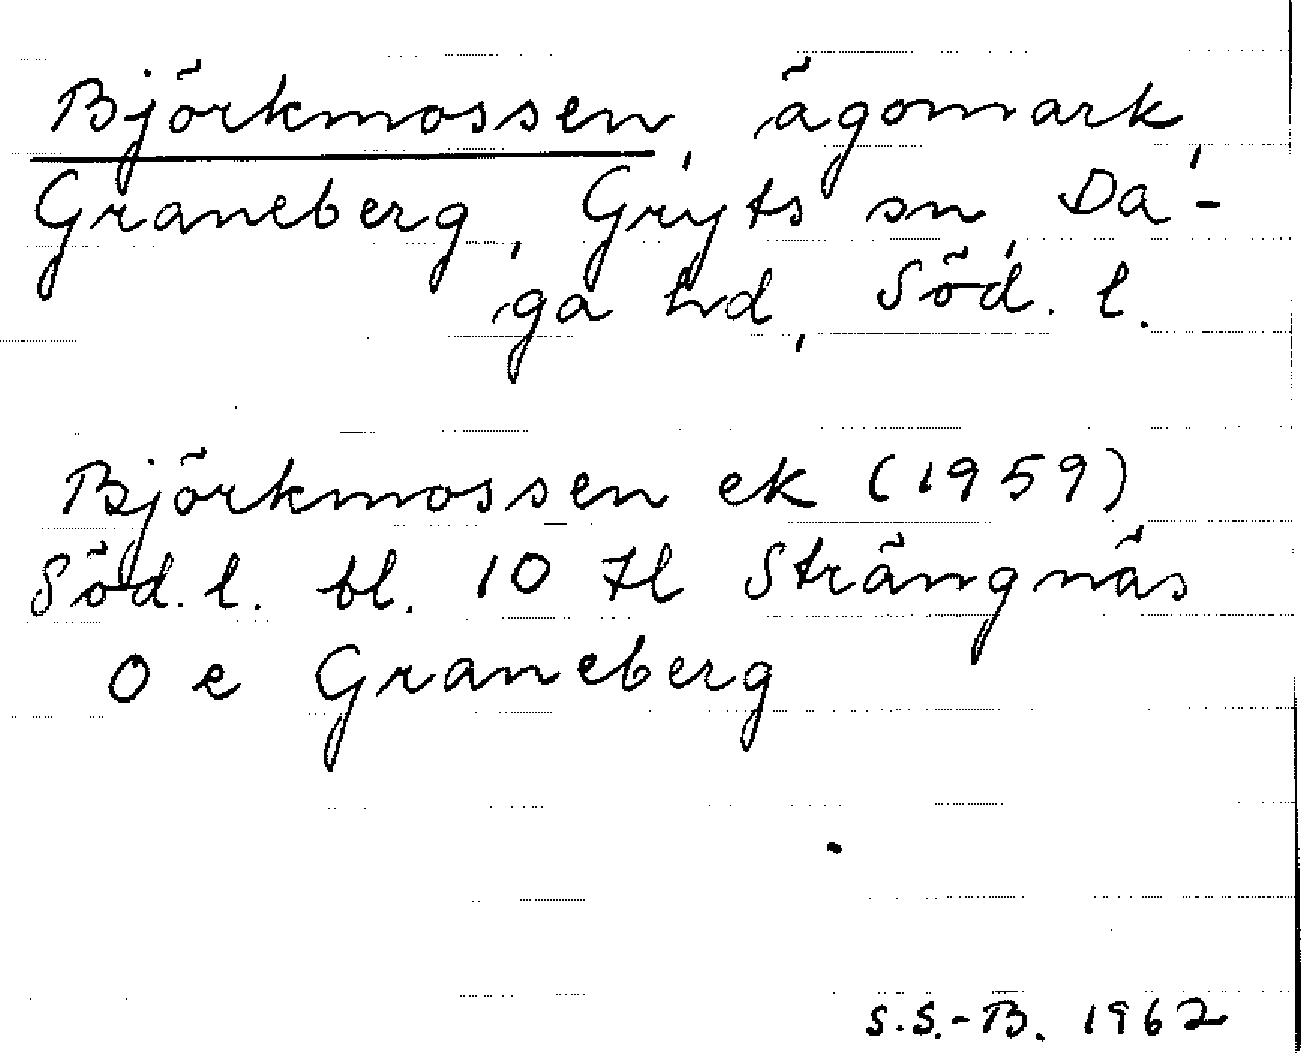 Björkmossen, ägomark,
Graneberg, Gryts sn, Då-
ga hd, Söd. l.
Björkmossen ek (1959)
Söd. l. bl. 10 Strängnäs
O e Graneberg
S.S.-B. 1962